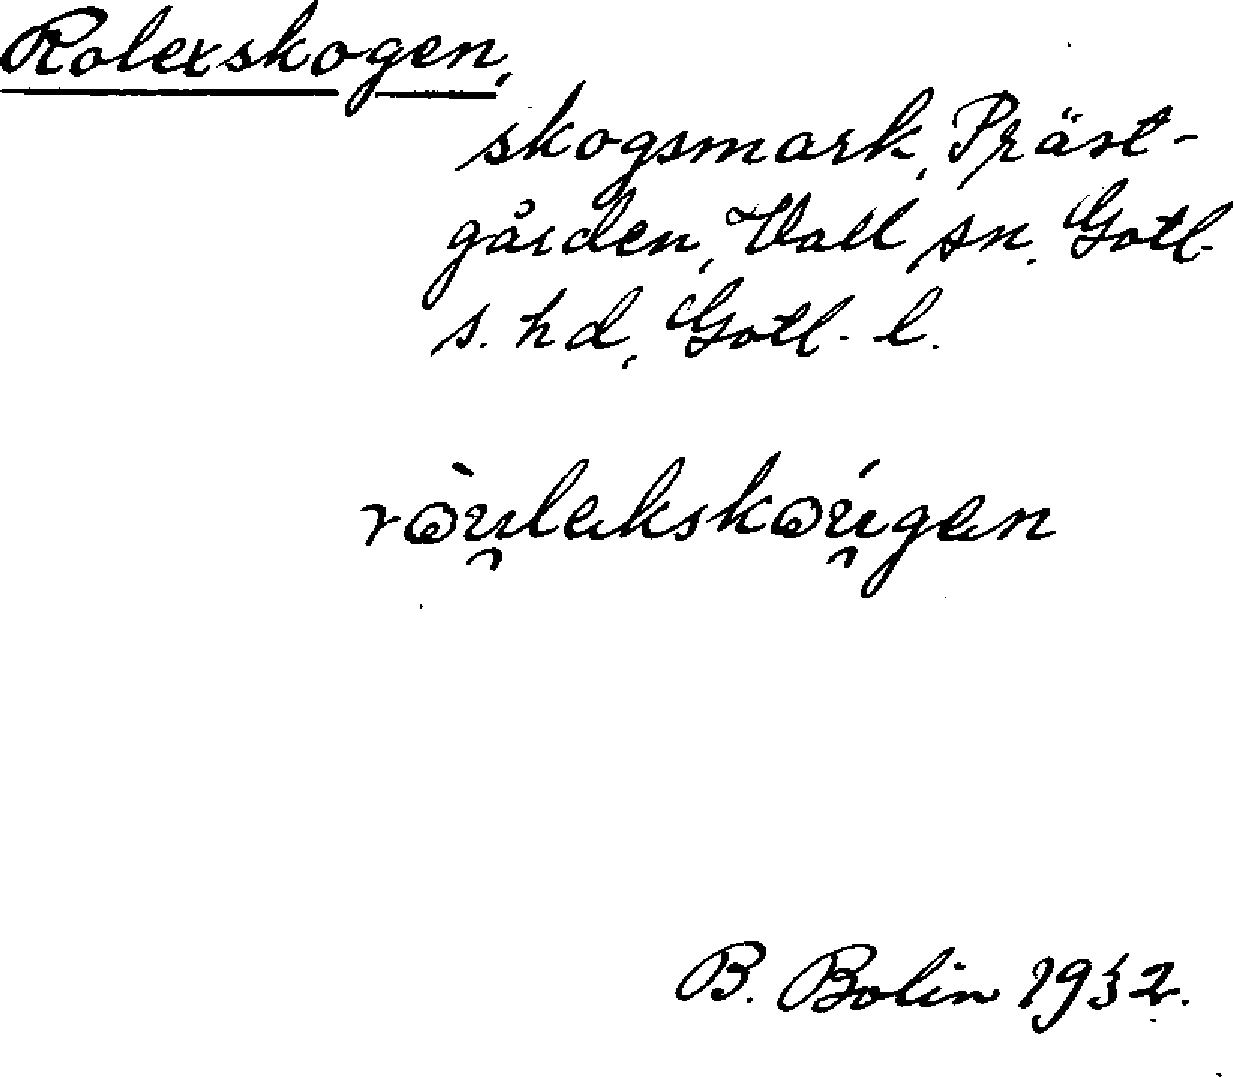 Rolexskogen,
skogsmark, Präst-
gården, Vall sn. Gotl.
s. hd, Gotl. l.
B. Bolin 1932.